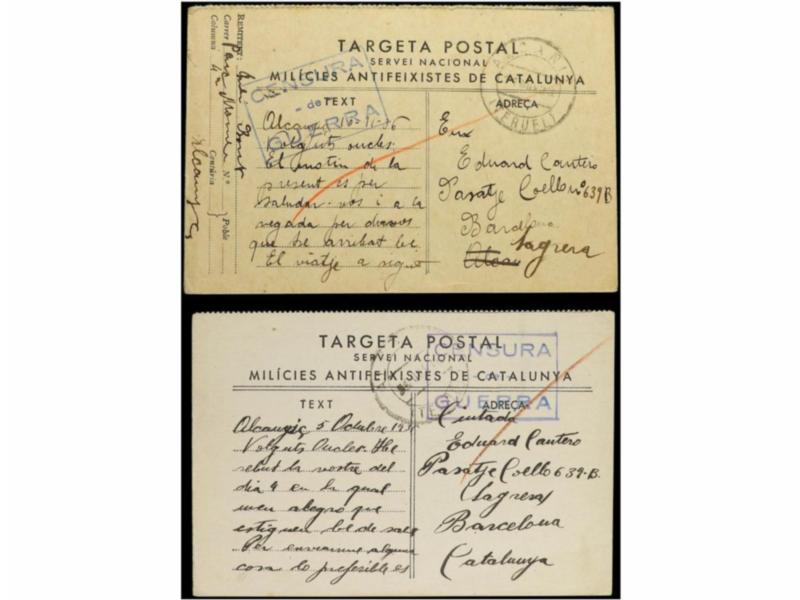 TARGETA POSTAL
SERVEI NACIONAL
MILÍCIES ANTIFEIXISTES DE CATALUNYA
CENSURA
- de -
GUERRA
(TERUEL)
REMITENT:
Carrer Nº
Columna 4ª Centúria Poble
TEXT
Volguts oncles:
El motiu de la
present es per
saludar-vos i a la
vegada per
que he arribat be.
El viatje a sigut
ADREÇA
Eduard Cantero
Pasatje Coello nº 639 B
Barcelona
Sagrera
TARGETA POSTAL
SERVEI NACIONAL
MILÍCIES ANTIFEIXISTES DE CATALUNYA
CENSURA
- de -
GUERRA
TEXT
Alcanyiç 5 Octubre
Volguts Oncles: He
rebut la vostre del
dia 4 en la qual
men alegro que
estigueu be de salut
Per enviarme alguna
cosa lo preferible es
ADREÇA
Ciutadà
Eduard Cantero
Pasatje Coello 639-B.
(Sagrera)
Barcelona
Catalunya